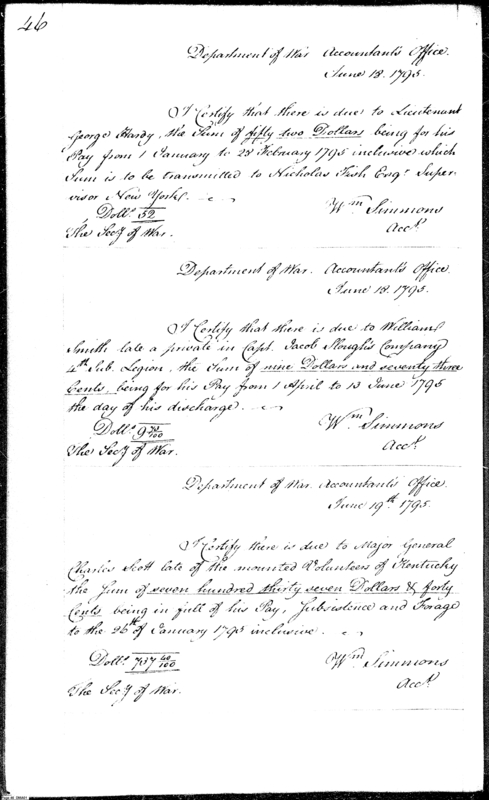 46
Department of War Accountant's Office.
June 18. 1795.
I Certify that there is due to Lieutenant
George Hardy, the Sum of fifty two Dollars being for his
Pay from 1 January to 28 February 1795 inclusive which
Sum is to be transmitted to Nicholas Fish Esqr. Super-
visor New York.
Dolls. 52
Wm Simmons
Acct.
The Secy of War.
Department of War. Accountant's Office.
June 18. 1795.
I Certify that there is due to William
Smith late a private in Capt. Jacob Slough's Company
4th Sub. Legion, the Sum of nine Dollars and seventy three
Cents, being for his Pay from 1 April to 13 June 1795
the day of his discharge.
Dolls. 9 73/100
Wm Simmons
Acct.
The Secy of War.
Department of War. Accountant's Office.
June 19th. 1795.
I Certify there is due to Major General
Charles Scott late of the mounted Volunteers of Kentucky
the Sum of seven hundred thirty seven Dollars & forty
Cents being in full of his Pay, Subsistence and Forage
to the 26th of January 1795 inclusive.
Dolls. 737 40/100
Wm Simmons
Acct.
The Secy of War.